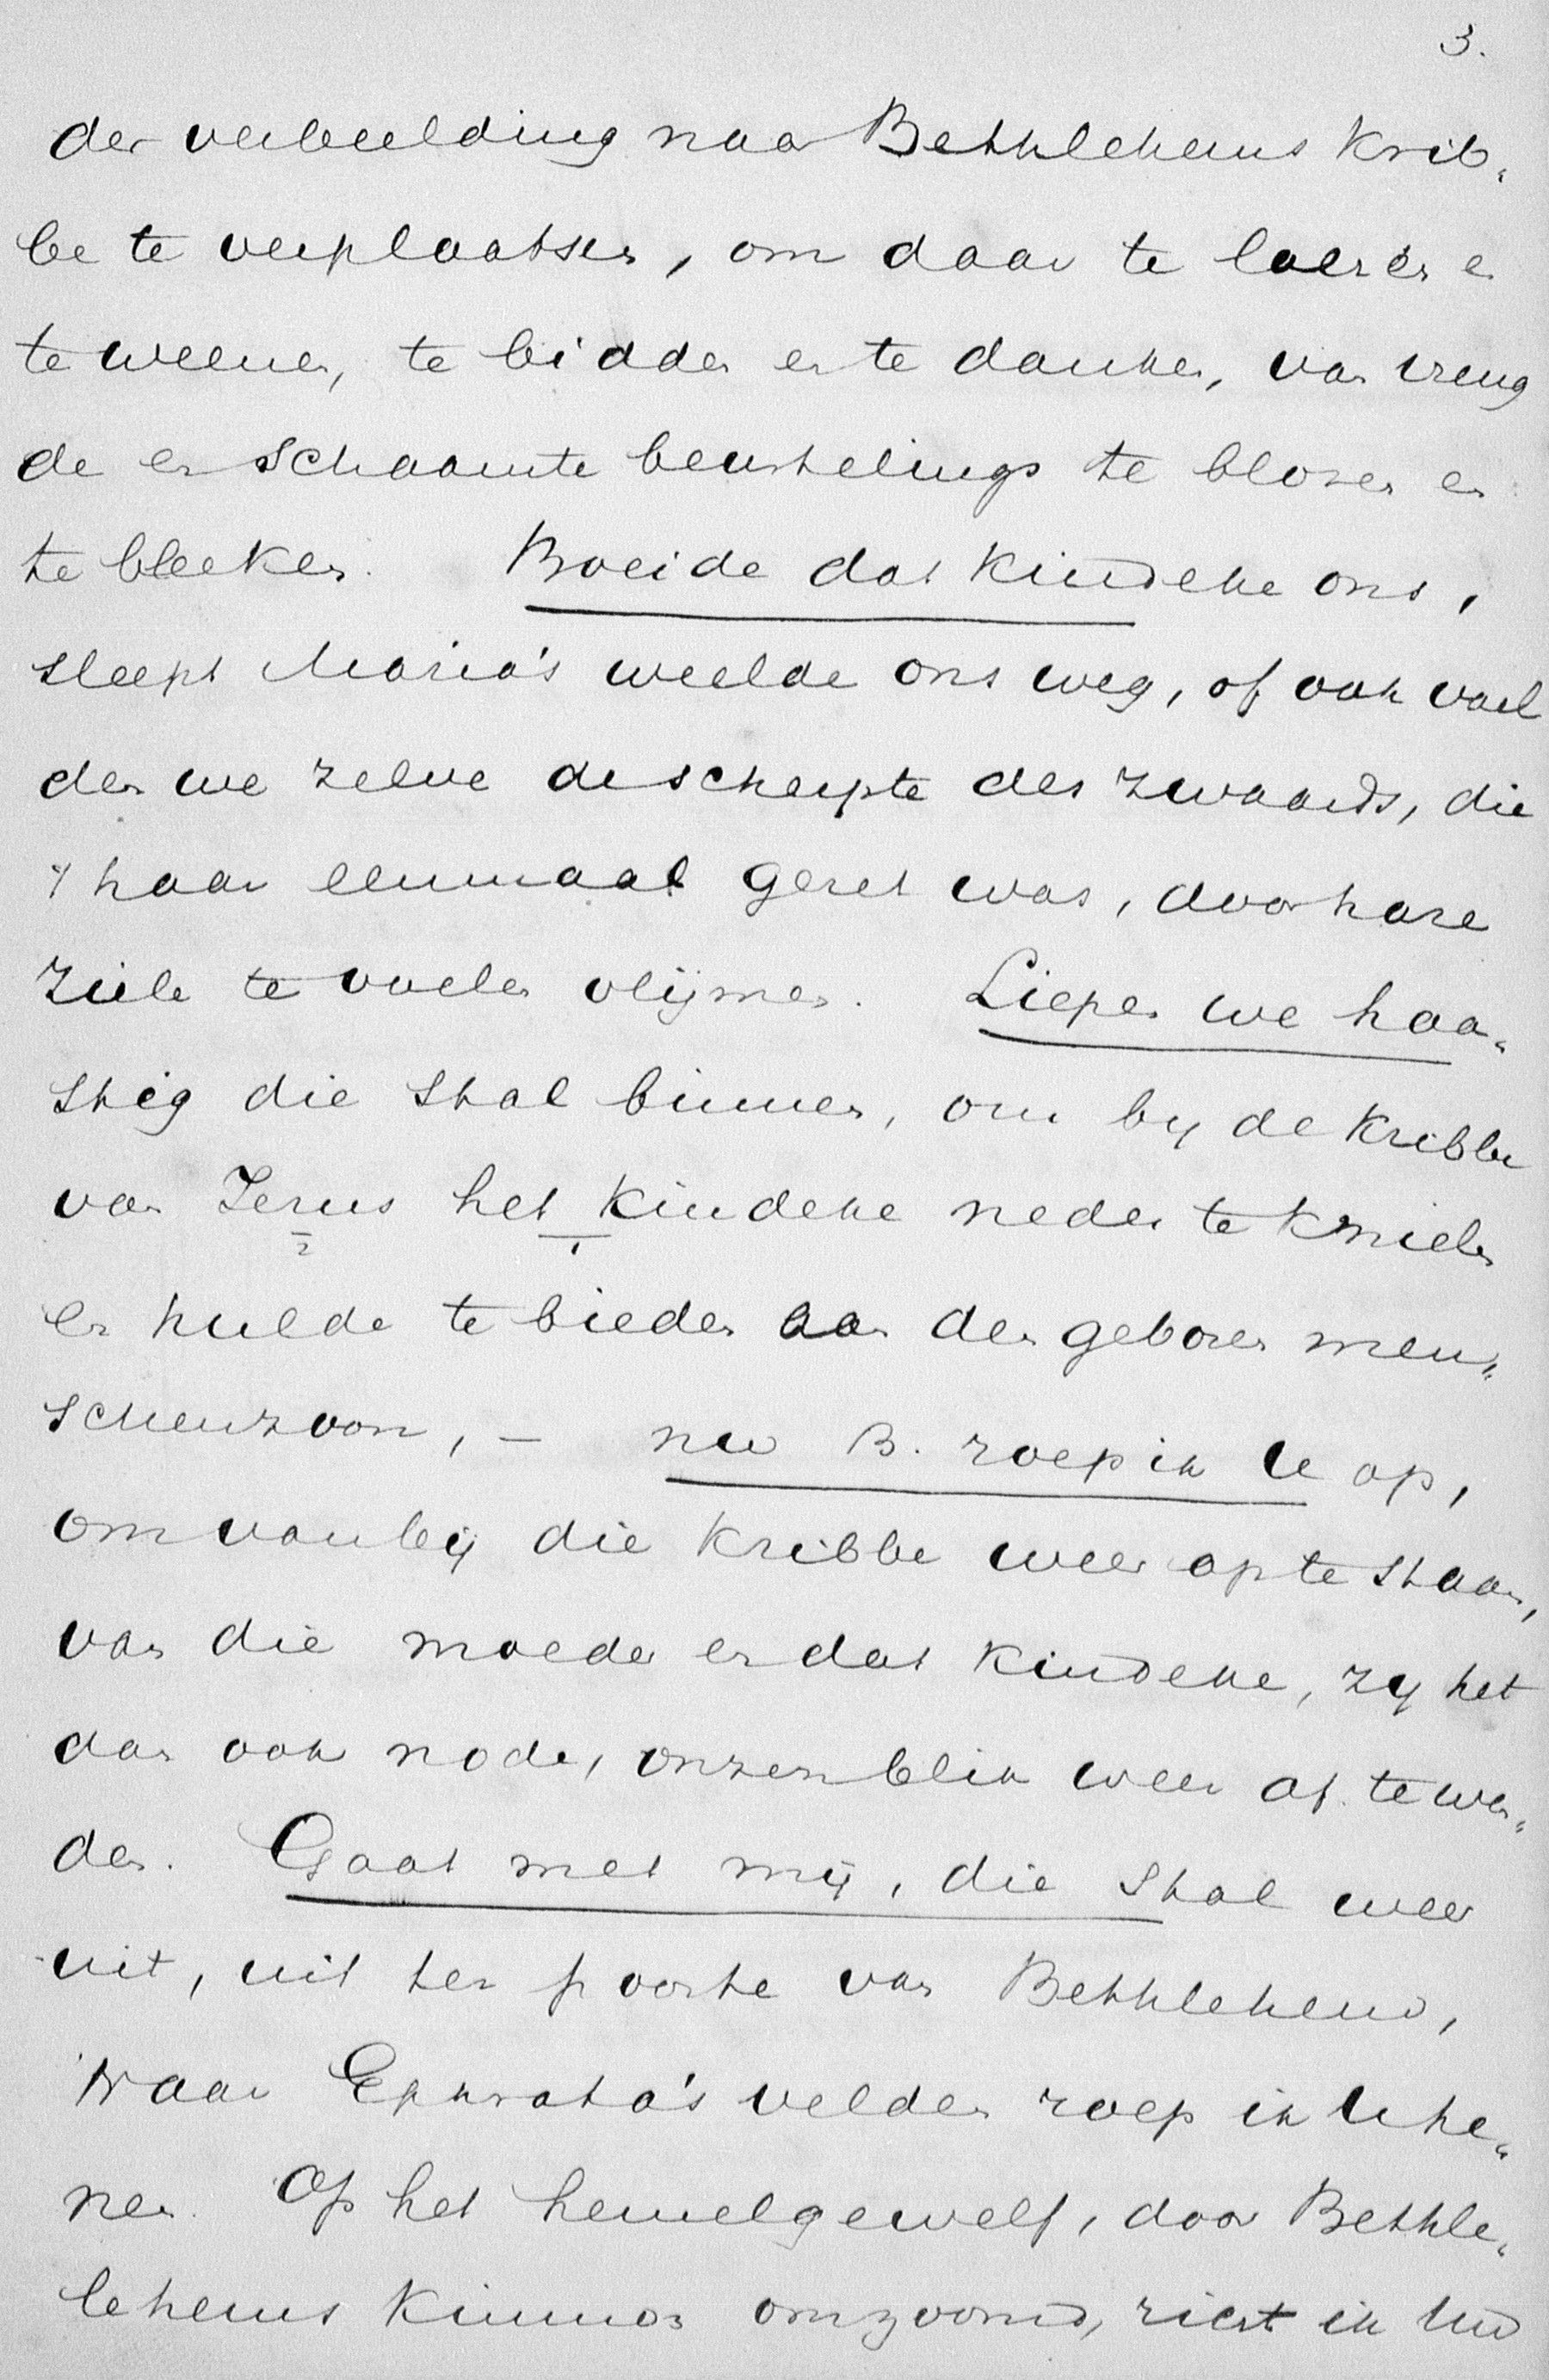 3.
der verbeelding naar Bethlehems krib„
be te verplaatsen, om daar te loeren en
te weenen, te bidden en te danken, van vreug
de en schaamte beurtelings te blozen en
te bleeken. Boeide dat kindeke ons,
sleept Maria's weelde ons weg, of ook voel
den we zelve de scherpte des zwaards, die
haar eenmaal gezet was, door hare
ziele te voelen vlijmen. Liepen we haa„
stig die stal binnen, om bij de kribbe
van Jezus het kindeke neder te knielen
en hulde te bieden aan den geboren men„
schenzoon, – nu B. roep ik U op,
om van bij die kribbe weer op te staan,
van die moeder en dat kindeke, zij het
dan ook node, onzen blik weer af te wen„
den. Gaat met mij, die stal weer
uit, uit ter poorte van Bethlehem,
Naar Ephrata's velden roep ik U he„
nen. Op het hemelgewelf, door Bethle„
lehems kimmen omzoomd, richt ik Uw